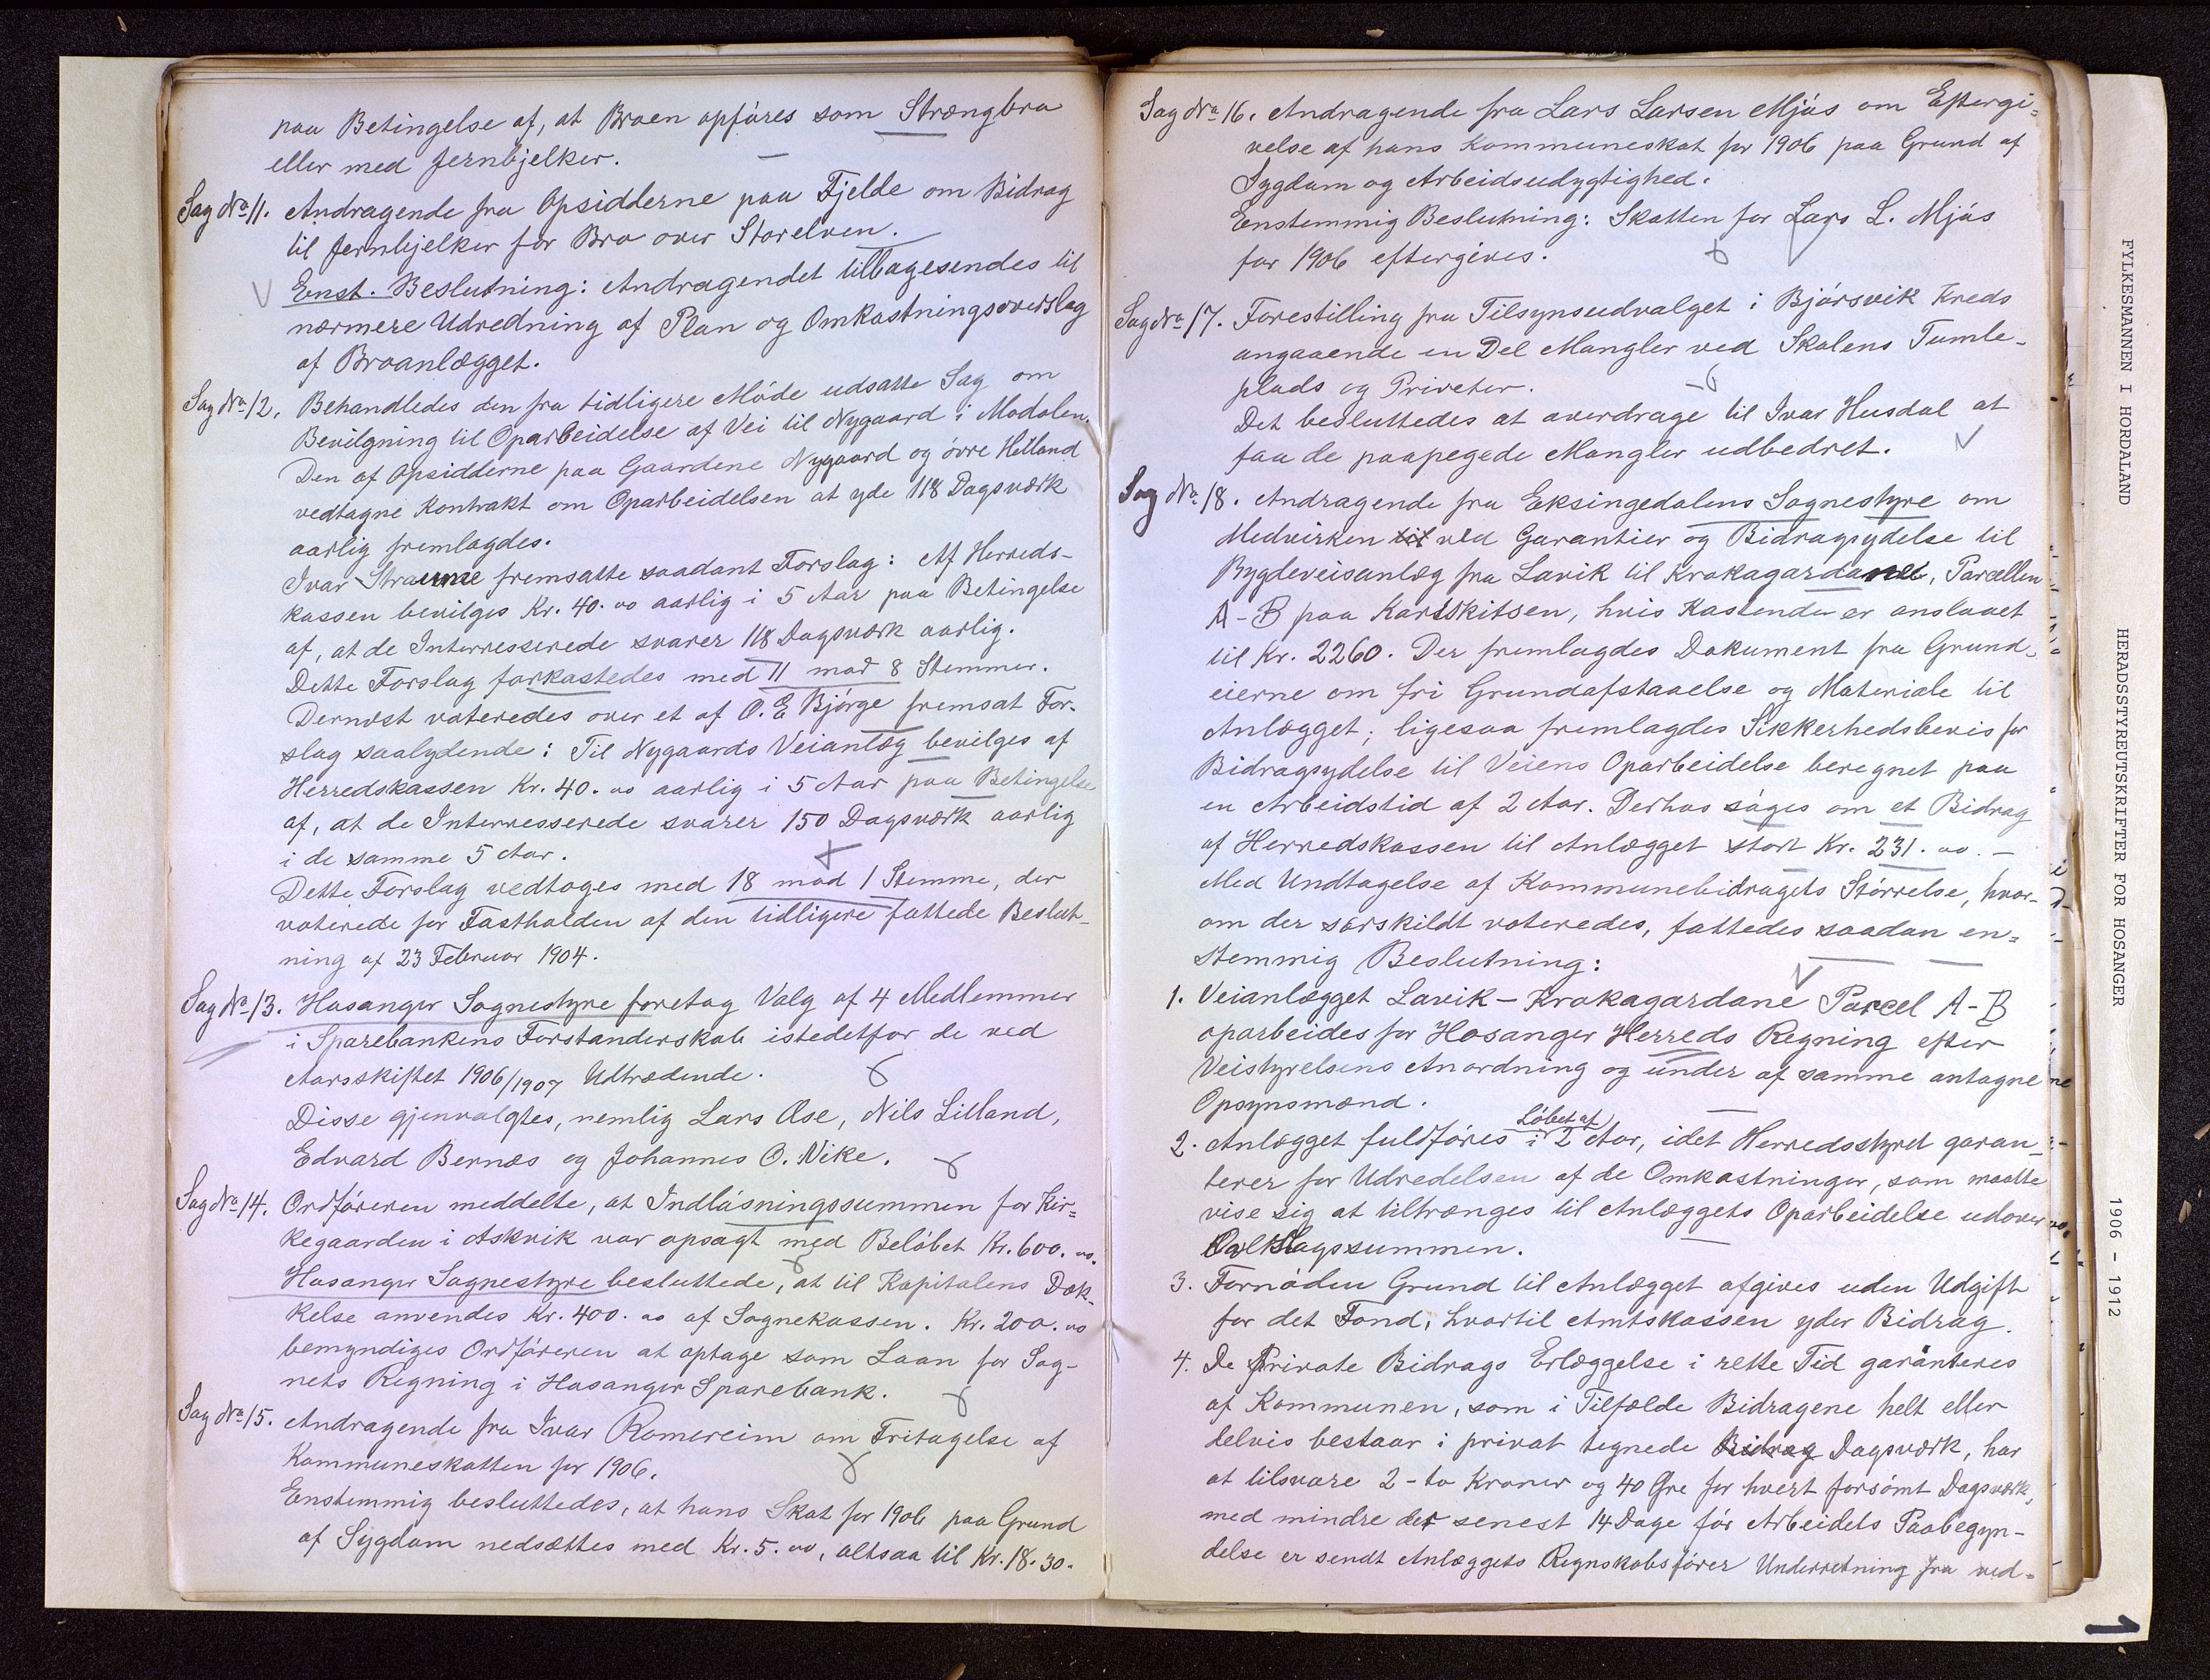 paa Betingelse af, at Broen opføres som Strængbro
eller med Jernbjelker.
Sag No 11. Andragende fra Opsidderne paa Fjelde om Bidrag
til Jernbjelker for Bro over Storelven.
Enst. Beslutning: Andragendet tilbagesendes til
nærmere Udredning af Plan og Omkostningsoverslag
af Broanlægget.
Sag No 12. Behandledes den fra tidligere Møde udsatte Sag om
Bevilgning til Oparbeidelse af Vei til Nygaard i Modalen.
Den af Opsidderne paa Gaardene Nygaard og øvre Helland
vedtagne Kontrakt om Oparbeidelsen at yde 118 Dagsværk
aarlig fremlagdes.
Ivar Straume fremsatte saadant Forslag: Af Herreds-
kassen bevilges Kr. 40.00 aarlig i 5 Aar paa Betingelse
af, at de Interresserede svarer 118 Dagsværk aarlig.
Dette Forslag forkastedes med 11 mod 8 Stemmer.
Dernæst voteredes over et af O. E Bjørge fremsat For-
slag saalydende: Til Nygaards Veianlæg bevilges af
Herredskassen Kr. 40.00 aarlig i 5 Aar paa Betingelse
af, at de Interresserede svarer 150 Dagsværk aarlig
i de samme 5 Aar.
Dette Forslag vedtoges med 18 mod 1 Stemme, der
voterede for Fastholden af den tidligere fattede Beslut-
ning af 23 Februar 1904.
Sag No 13. Hosanger Sognestyre foretog Valg af 4 Medlemmer
i Sparebankens Forstanderskab istedetfor de ved
Aarsskiftet 1906/1907 Udtrædende.
Disse gjenvalgtes, nemlig Lars Øse, Nils Lilland,
Edvard Bernæs og Johannes O. Vike.
Sag No 14. Ordføreren meddelte, at Indløsningssummen for Kir=
kegaarden i Askvik var opsagt med Beløbet Kr. 600.00.
Hosanger Sognestyre besluttede, at til Kapitalens Dæk-
kelse anvendes Kr. 400.00 af Sognekassen. Kr. 200.00
bemyndiges Ordføreren at optage som Laan for Sog-
nets Regning i Hosanger Sparebank.
Sag No 15. Andragende fra Ivar Romereim om Fritagelse af
Kommuneskatten for 1906.
Enstemmig besluttedes, at hans Skat for 1906 paa Grund
af Sygdom nedsættes med Kr. 5.00, altsaa til Kr. 18.30.
Sag No 16. Andragende fra Lars Larsen Mjøs om Eftergi=
velse af hans Kommuneskat for 1906 paa Grund af
Sygdom og Arbeidsudygtighed.
Enstemmig Beslutning: Skatten for Lars L. Mjøs
for 1906 eftergives.
Sag No 17. Forestilling fra Tilsynsudvalget i Bjørsvik Kreds
angaaende en Del Mangler ved Skolens Tumle-
plads og Priveter.
Det besluttedes at overdrage til Ivar Husdal at
faa de paapegede Mangler udbedret.
Sag No 18. Andragende fra Eksingedalens Sognestyre om
Medvirken til ved Garantier og Bidragsydelse til
Bygdeveisanlæg fra Lavik til Krokagardane, Parcellen
A-B paa Kartskitsen, hvis Kostende er anslaaet
til Kr. 2260. Der fremlagdes Dokument fra Grund-
eierne om fri Grundafstaaelse og Materiale til
Anlægget; ligesaa fremlagdes Sikkerhedsbevis for
Bidragsydelse til Veiens Oparbeidelse beregnet paa
en Arbeidstid af 2 Aar. Derhos søges om et Bidrag
af Herredskassen til Anlægget stort Kr. 231.00.-
Med Undtagelse af Kommunebidragets Størrelse, hvor-
om der særskildt voteredes, fattedes saadan en=
stemmig Beslutning:
1. Veianlægget Lavik-Krokagardane Parcel A-B
oparbeides for Hosanger Herreds Regning efter
Veistyrelsens Anordning og under af samme antagne
Opsynsmænd.
2. Anlægget fuldføres i Løbet af 2 Aar, idet Herredsstyret garan-
terer for Udredelsen af de Omkostninger, som maatte
vise sig at tiltrænges til Anlæggets Oparbeidelse udover
Overslagssummen.
3. Fornøden Grund til Anlægget afgives uden Udgift
for det Fond, hvortil Amtskassen yder Bidrag.
4. De Private Bidrags Erlæggelse i rette Tid garanteres
af Kommunen, som i Tilfælde Bidragene helt eller
delvis bestaar i privat tegnede Bidrag Dagsværk, har
at tilsvare 2-to Kroner og 40 Øre for hvert forsømt Dagsværk,
med mindre der senest 14 Dage før Arbeidets Paabegyn-
delse er sendt Anlæggets Regnskabsfører Underretning fra ved=
FYLKESMANNEN I HORDALAND
HERADSSTYREUTSKRIFTER FOR HOSANGER
1906 - 1912
1